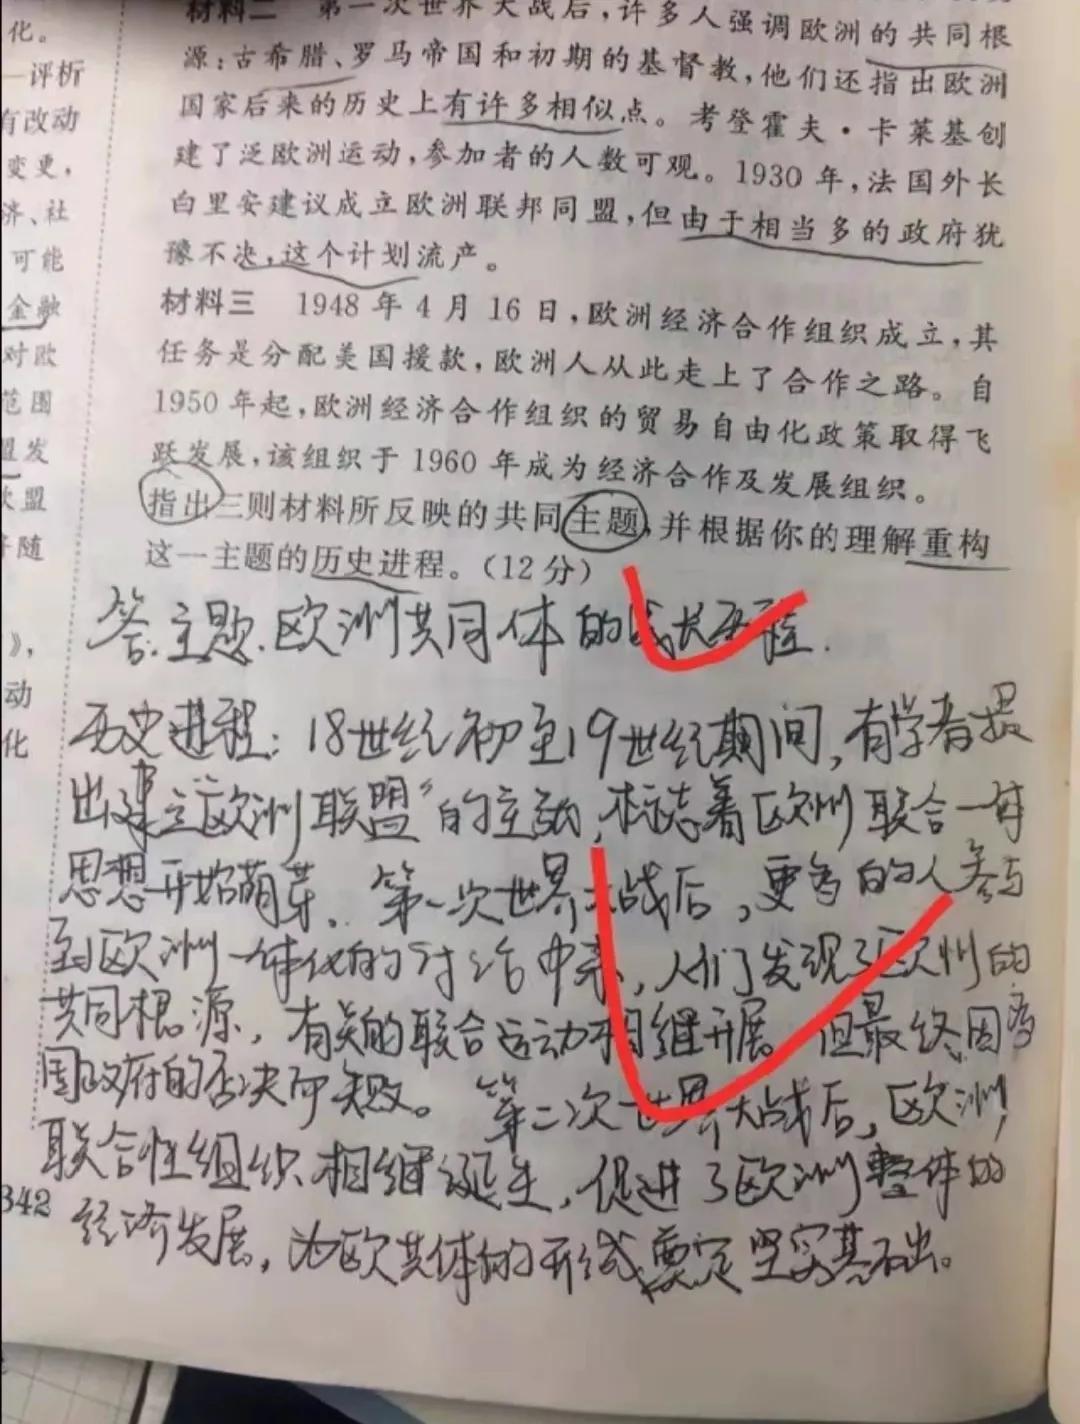 化。
一评析
有改动
变更，
济、社
可能
金融
对欧
范围
盟发
欧盟
》，
动
化
材料二 第一次世界大战后，许多人强调欧洲的共同根
源：古希腊、罗马帝国和初期的基督教，他们还指出欧洲
国家后来的历史上有许多相似点。考登霍夫·卡莱基创
建了泛欧洲运动，参加者的人数可观。1930年，法国外长
白里安建议成立欧洲联邦同盟，但由于相当多的政府犹
豫不决，这个计划流产。
材料三 1948年4月16日，欧洲经济合作组织成立，其
任务是分配美国援款，欧洲人从此走上了合作之路。自
1950年起，欧洲经济合作组织的贸易自由化政策取得飞
跃发展，该组织于1960年成为经济合作及发展组织。
指出三则材料所反映的共同主题，并根据你的理解重构
这一主题的历史进程。（12分）
答：主题：欧洲共同体的成长历程.
历史进程：18世纪初至19世纪期间，有学者提
出建立“欧洲联盟”的主张，标志着欧洲联合一体
思想开始萌芽. 第一次世界大战后，更多的人参与
到欧洲一体化的讨论中来，人们发现了欧州的
共同根源，有关的联合运动相继开展。但最终因多
国政府的否决而失败。 第二次世界大战后，欧洲
联合性组织相继诞生，促进了欧洲整体的
经济发展，为欧共体的形成奠定坚实基石出。
342